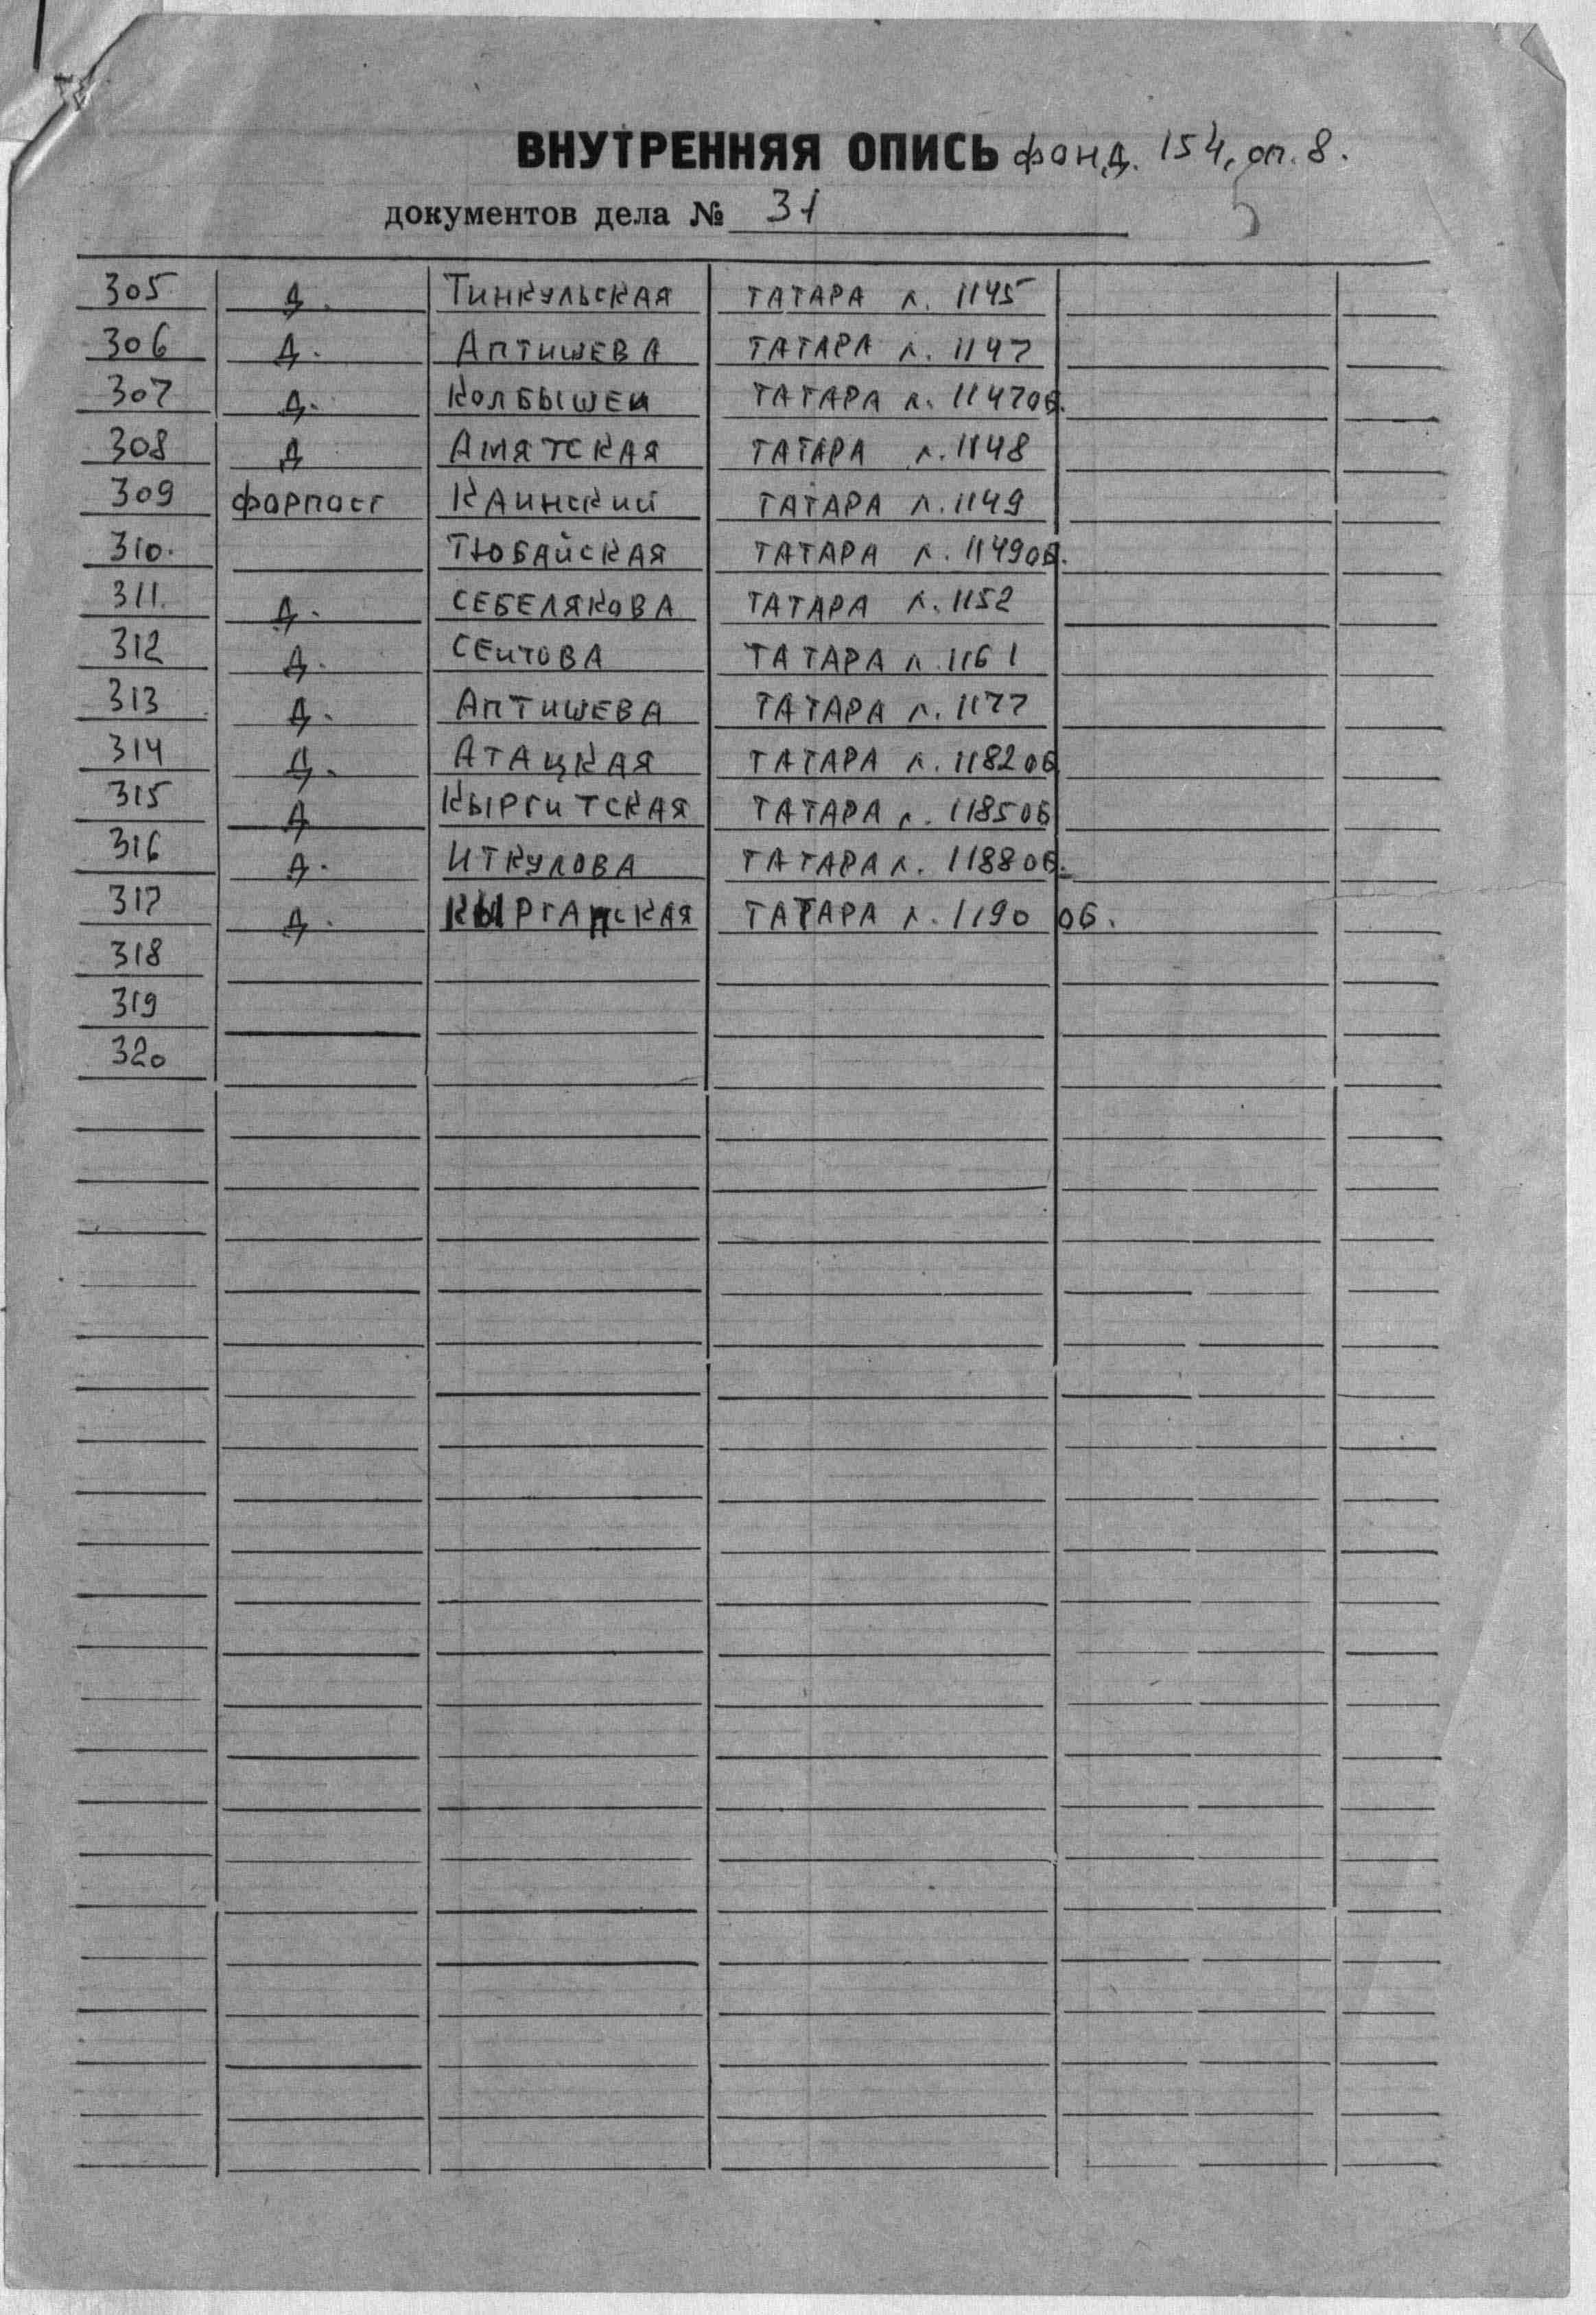 ВНУТРЕННЯЯ ОПИСЬ фонд. 154, оп. 8.
документов дела № 31
5
305 д. Тинкульская татара л. 1145
306 д. Аптишева татара л. 1147
307 д. Колбышеи татара л. 1147об.
308 д Амятская татара л. 1148
309 форпост Каинский татара л. 1149
310. Тюбайская татара л. 1149об.
311. д. Себелякова татара л. 1152
312 д. Сеитова татара л. 1161
313 д. Аптишева татара л. 1177
314 д. Атацкая татара л. 1182об
315 д Кыргитская татара л. 1185об
316 д. Иткулова татара л. 1188об.
317 д. татара л. 1190 об.
318
319
320